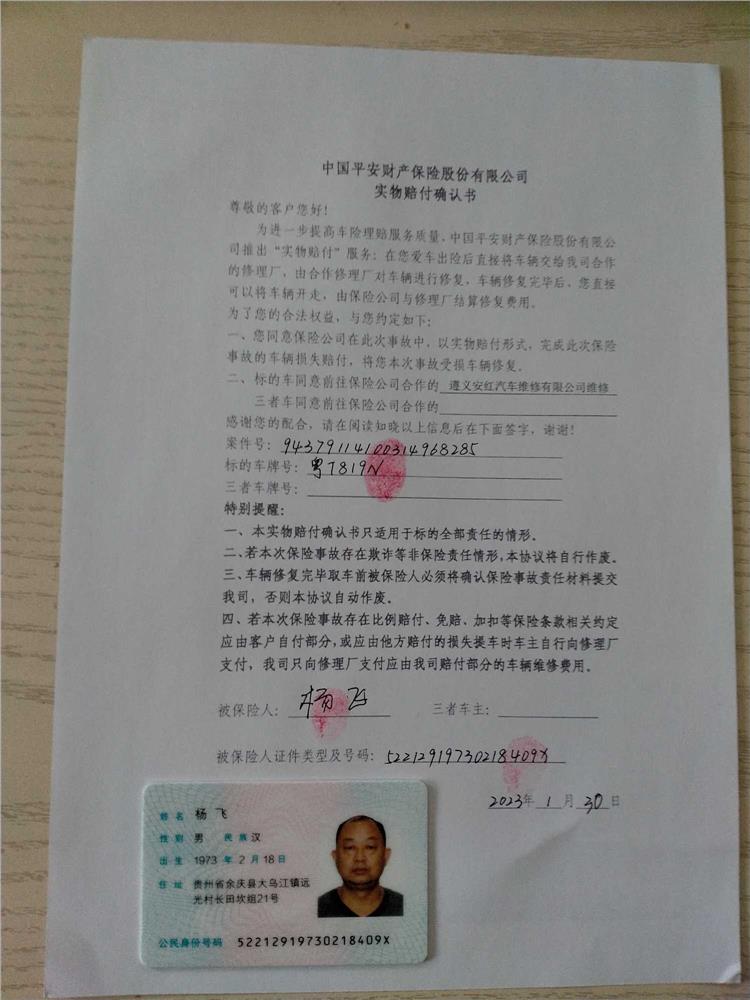 中国平安财产保险股份有限公司
实物赔付确认书
尊敬的客户您好!
为进一步提高车险理赔服务质量,中国平安财产保险股份有限公
司推出“实物赔付”服务:在您爱车出险后直接将车辆交给我司合作
的修理厂,由合作修理厂对车辆进行修复,车辆修复完毕后,您直接
可以将车辆开走,由保险公司与修理厂结算修复费用。
为了您的合法权益,与您约定如下:
一、您同意保险公司在此次事故中,以实物赔付形式,完成此次保险
事故的车辆损失赔付,将您本次事故受损车辆修复。
二、标的车同意前往保险公司合作的 遵义安红汽车维修有限公司维修
三者车同意前往保险公司合作的
感谢您的配合,请在阅读知晓以上信息后在下面签字,谢谢!
案件号: 94379114100314968285
标的车牌号: 粤T819N
三者车牌号:
特别提醒:
一、本实物赔付确认书只适用于标的全部责任的情形。
二、若本次保险事故存在欺诈等非保险责任情形,本协议将自行作废。
三、车辆修复完毕取车前被保险人必须将确认保险事故责任材料提交
我司,否则本协议自动作废。
四、若本次保险事故存在比例赔付、免赔、加扣等保险条款相关约定
应由客户自付部分,或应由他方赔付的损失提车时车主自行向修理厂
支付,我司只向修理厂支付应由我司赔付部分的车辆维修费用。
被保险人: 杨飞 三者车主:
被保险人证件类型及号码: 52212919730218409X
2023年 1 月 30 日
姓名 杨飞
性别 男 民族 汉
出生 1973 年 2 月 18 日
住址 贵州省余庆县大乌江镇远
光村长田坎组21号
公民身份号码 52212919730218409X